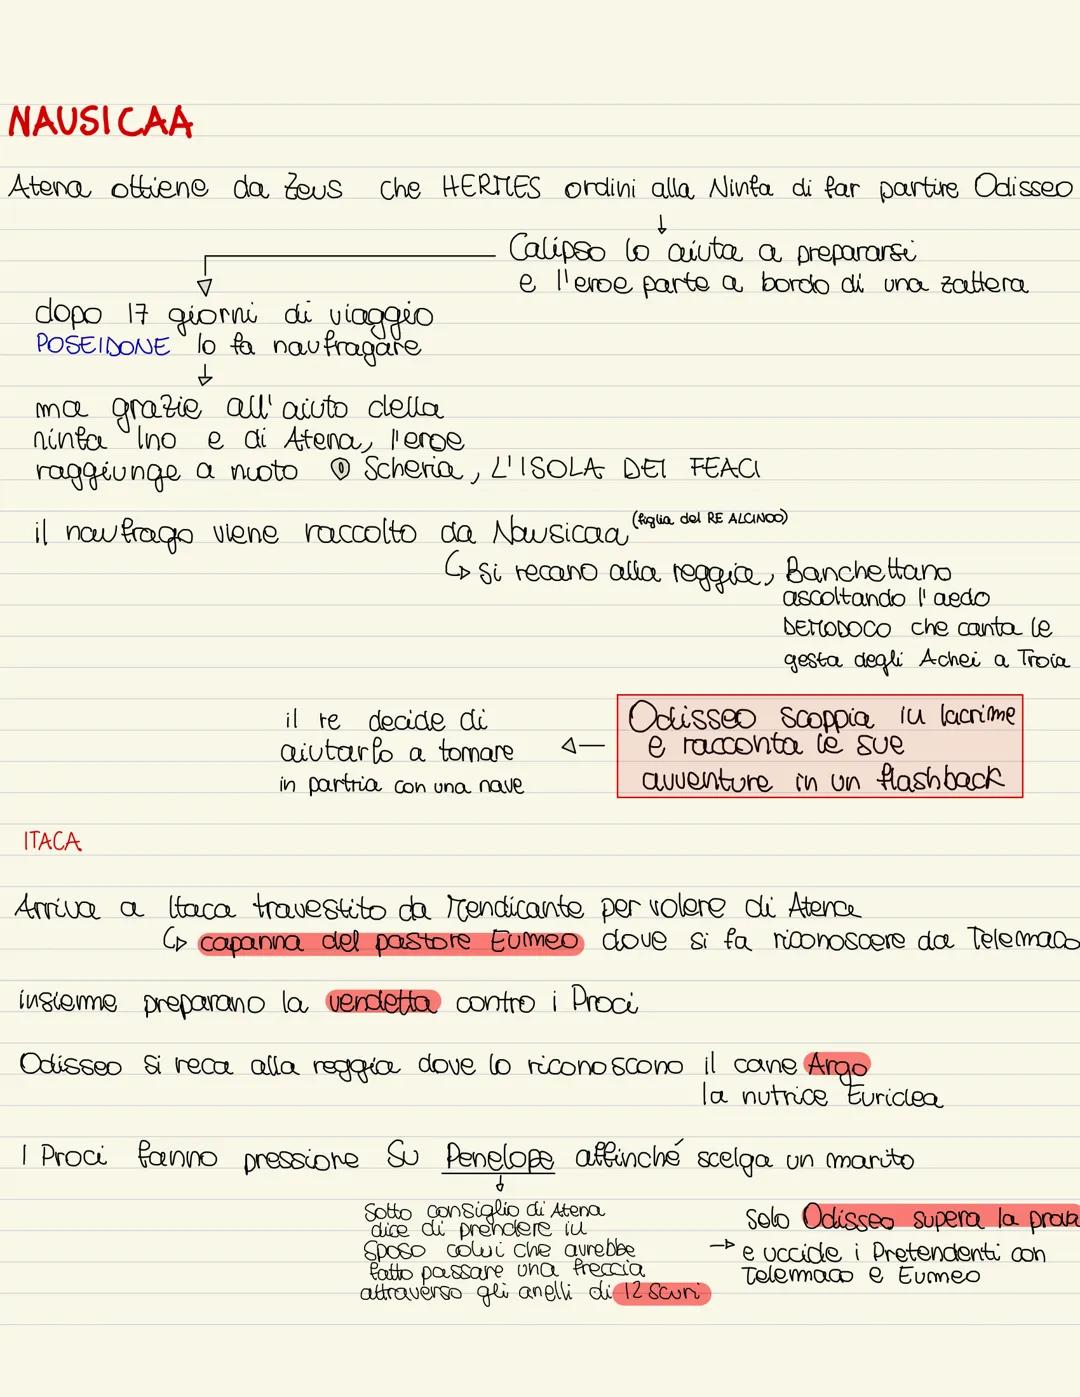 NAUSICAA
Atena ottiene da Zeus che HERMES ordini alla Ninfa di far partire Odisseo
↓
Calipso lo aiuta a prepararsi
e l'eroe parte a bordo di una zattera
dopo 17 giorni di viaggio
POSEIDONE lo fa naufragare
↓
ma grazie all'aiuto della
ninfa Ino e di Atena, l'eroe
raggiunge a nuoto Scheria, L'ISOLA DEI FEACI
il naufrago viene raccolto da Nausicaa (figlia del RE ALCINOO)
↳ si recano alla reggia, Banchettano
ascoltando l'aedo
DEMODOCO che canta le
gesta degli Achei a Troia
Odisseo scoppia in lacrime
e racconta le sue
avventure in un flashback
il re decide di
aiutarlo a tornare
in partria con una nave
ITACA
Arriva a Itaca travestito da Mendicante per volere di Atena
↳ capanna del pastore Eumeo dove si fa riconoscere da Telemaco
insieme preparano la vendetta contro i Proci
Odisseo si reca alla reggia dove lo riconoscono il cane Argo
la nutrice Euriclea
I Proci fanno pressione su Penelope affinché scelga un marito
↓
Sotto consiglio di Atena
dice di prendere in
sposo colui che avrebbe
fatto passare una freccia
attraverso gli anelli di 12 scuri
→ solo Odisseo supera la prova
e uccide i Pretendenti con
Telemaco e Eumeo